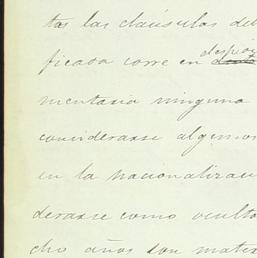 tas las cláusulas del
ficada corre en
mentaria ninguna
considerarse algunos
en la nacionalizaci
derarse como oculto
cho años son mater